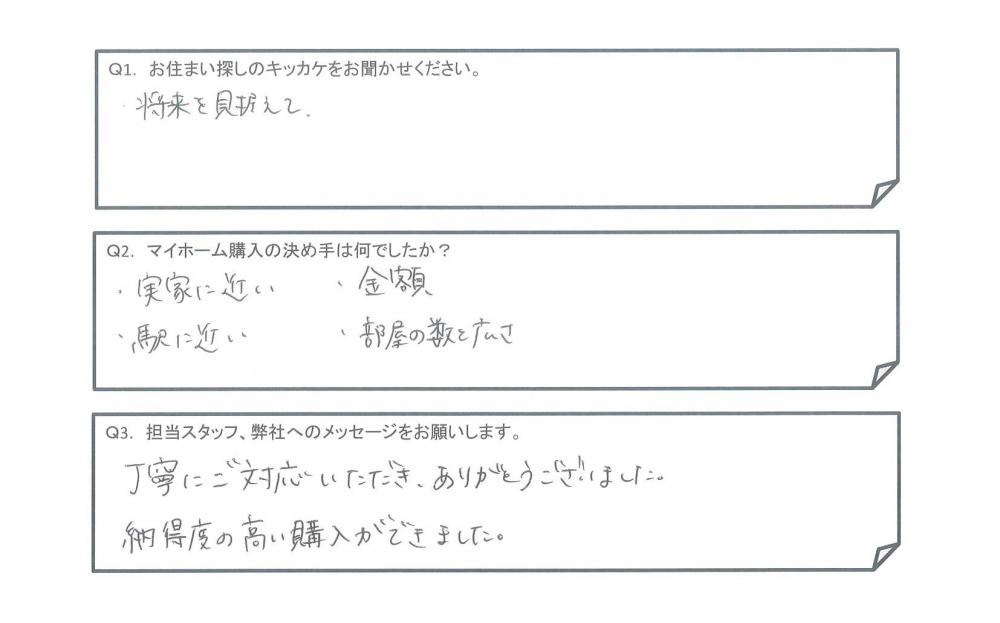 Q1. お住まい探しのキッカケをお聞かせください。
・将来を見据えて.
Q2. マイホーム購入の決め手は何でしたか？
・実家に近い ・金額
・駅に近い ・部屋の数と広さ
Q3. 担当スタッフ、弊社へのメッセージをお願いします。
丁寧にご対応いただき、ありがとうございました。
納得度の高い購入ができました。